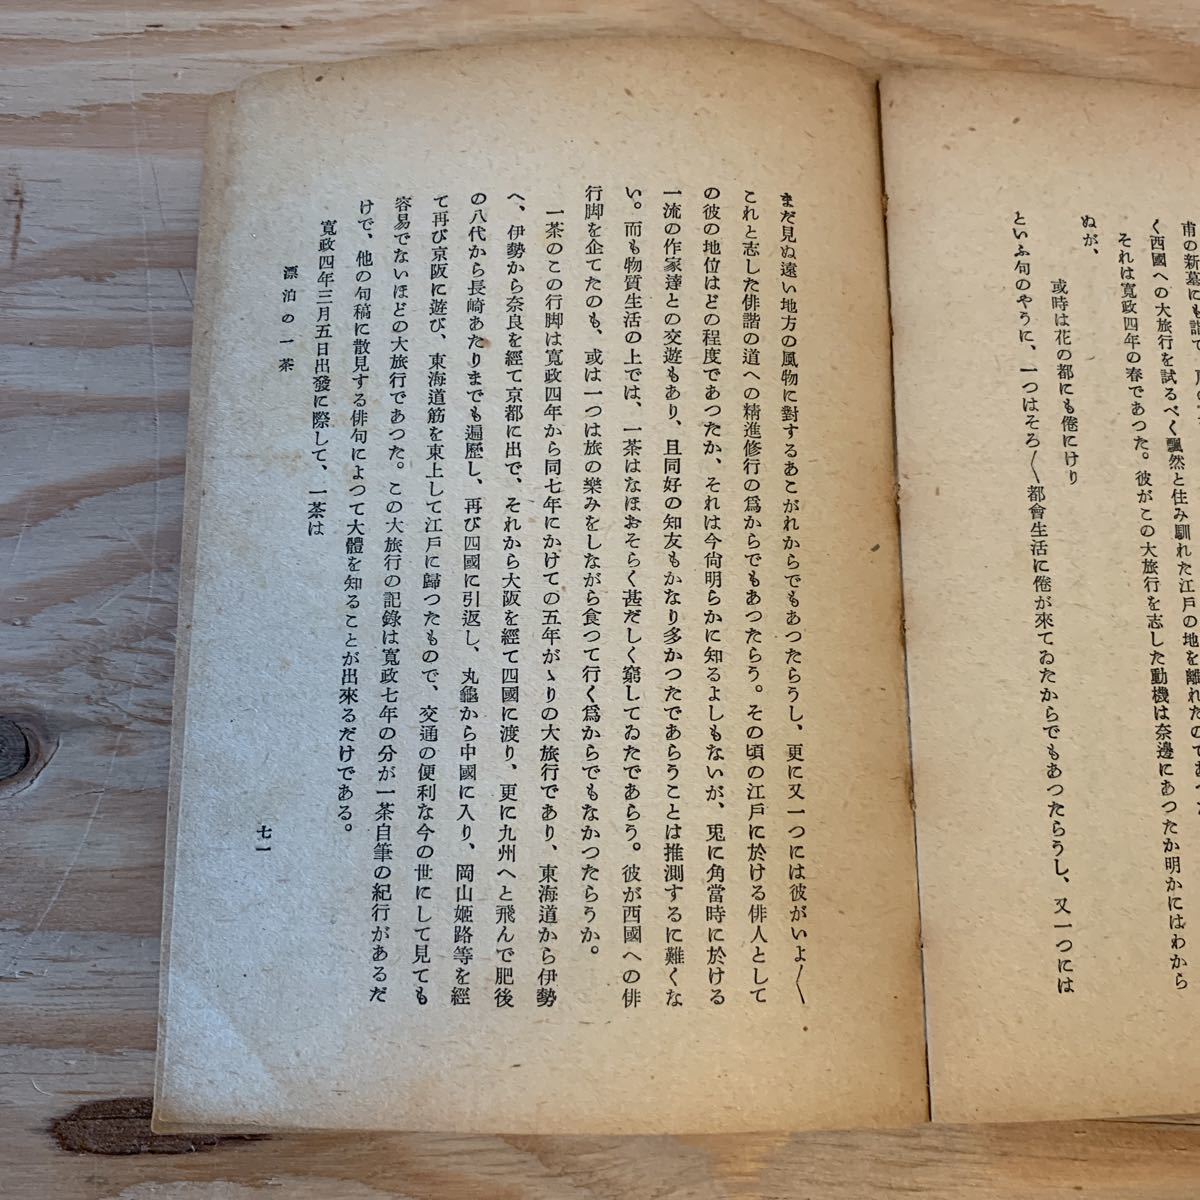 甫の新墓にも詣で
く西國への大旅行を試るべく飄然と住み馴れた江戸の地を離れたのであつ
それは寬政四年の春であつた。彼がこの大旅行を志した動機は奈邊にあつたか明かにはわから
ぬが、
或時は花の都にも倦にけり
といふ句のやうに、一つはそろ〳〵都會生活に倦が來てゐたからでもあつたらうし、又一つには
まだ見ぬ遠い地方の風物に對するあこがれからでもあつたらうし、更に又一つには彼がいよ〳〵
これと志した俳諧の道への精進修行の爲からでもあつたらう。その頃の江戸に於ける俳人として
の彼の地位はどの程度であつたか、それは今尙明らかに知るよしもないが、兎に角當時に於ける
一流の作家達との交遊もあり、且同好の知友もかなり多かつたであらうことは推測するに難くな
い。而も物質生活の上では、一茶はなほおそらく甚だしく窮してゐたであらう。彼が西國への俳
行脚を企てたのも、或は一つは旅の樂みをしながら食つて行く爲からでもなかつたらうか。
一茶のこの行脚は寬政四年から同七年にかけての五年がゝりの大旅行であり、東海道から伊勢
へ、伊勢から奈良を經て京都に出で、それから大阪を經て四國に渡り、更に九州へと飛んで肥後
の八代から長崎あたりまでも遍歷し、再び四國に引返し、丸龜から中國に入り、岡山姬路等を經
て再び京阪に遊び、東海道筋を東上して江戸に歸つたもので、交通の便利な今の世にして見ても
容易でないほどの大旅行であつた。この大旅行の記錄は寬政七年の分が一茶自筆の紀行があるだ
けで、他の句稿に散見する俳句によつて大體を知ることが出來るだけである。
寬政四年三月五日出發に際して、一茶は
漂泊の一茶
七一